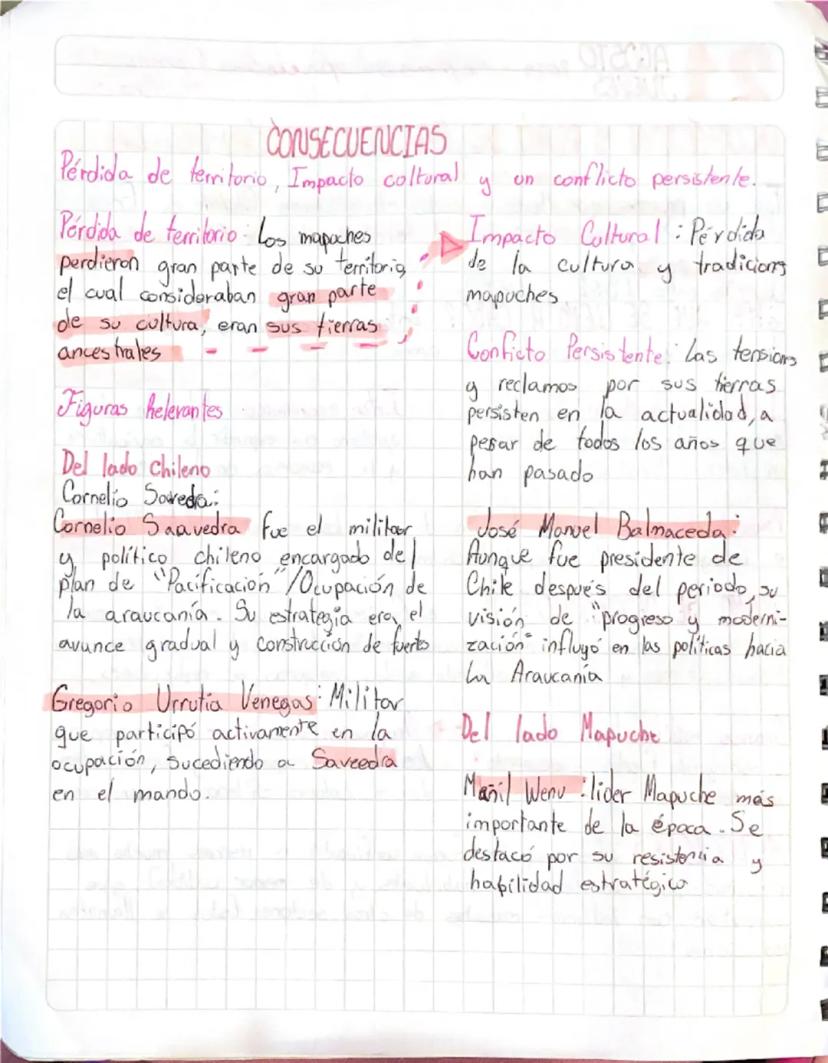 CONSECUENCIAS
Pérdida de territorio, Impacto coltural y un conflicto persistente.
Pérdida de territorio: Los mapuches
perdieron gran parte de su territorio,
el cual consideraban gran parte
de su cultura, eran sus tierras
ancestrales
Figuras Relevantes
Del lado Chileno
Cornelio Saveda:
Cornelio Saavedra fue el militar
y político chileno encargado del
plan de "Pacificación"/Ocupación de
la araucanía. Su estrategia era, el
avance gradual y construcción de fuerto
Gregorio Urrutia Venegas: Militar
que participó activamente en la
ocupación, sucediendo a Saveedra
en el mando.
Impacto Cultural: Pérdida
de la cultura y tradicions
mapuches
Conficto Persistente: Las tensions
y reclamos por sus tierras
persisten en la actualidad, a
pesar de todos los años que
han pasado
José Manuel Balmaceda:
Aunque fue presidente de
Chile después del periodo, su
visión de "progreso y moderni-
zación" influyó en las políticas hacia
la Araucanía
Del lado Mapuche
Mañil Wenu: lider Mapuche más
importante de la época. Se
destacó por su resistencia y
habilidad estratégica